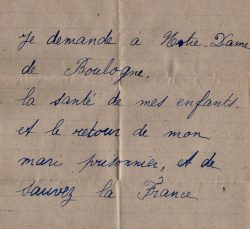 Je demande à Notre-Dame
de Boulogne.
la santé de mes enfants.
et le retour de mon
mari prisonnier, et de
sauvez la France